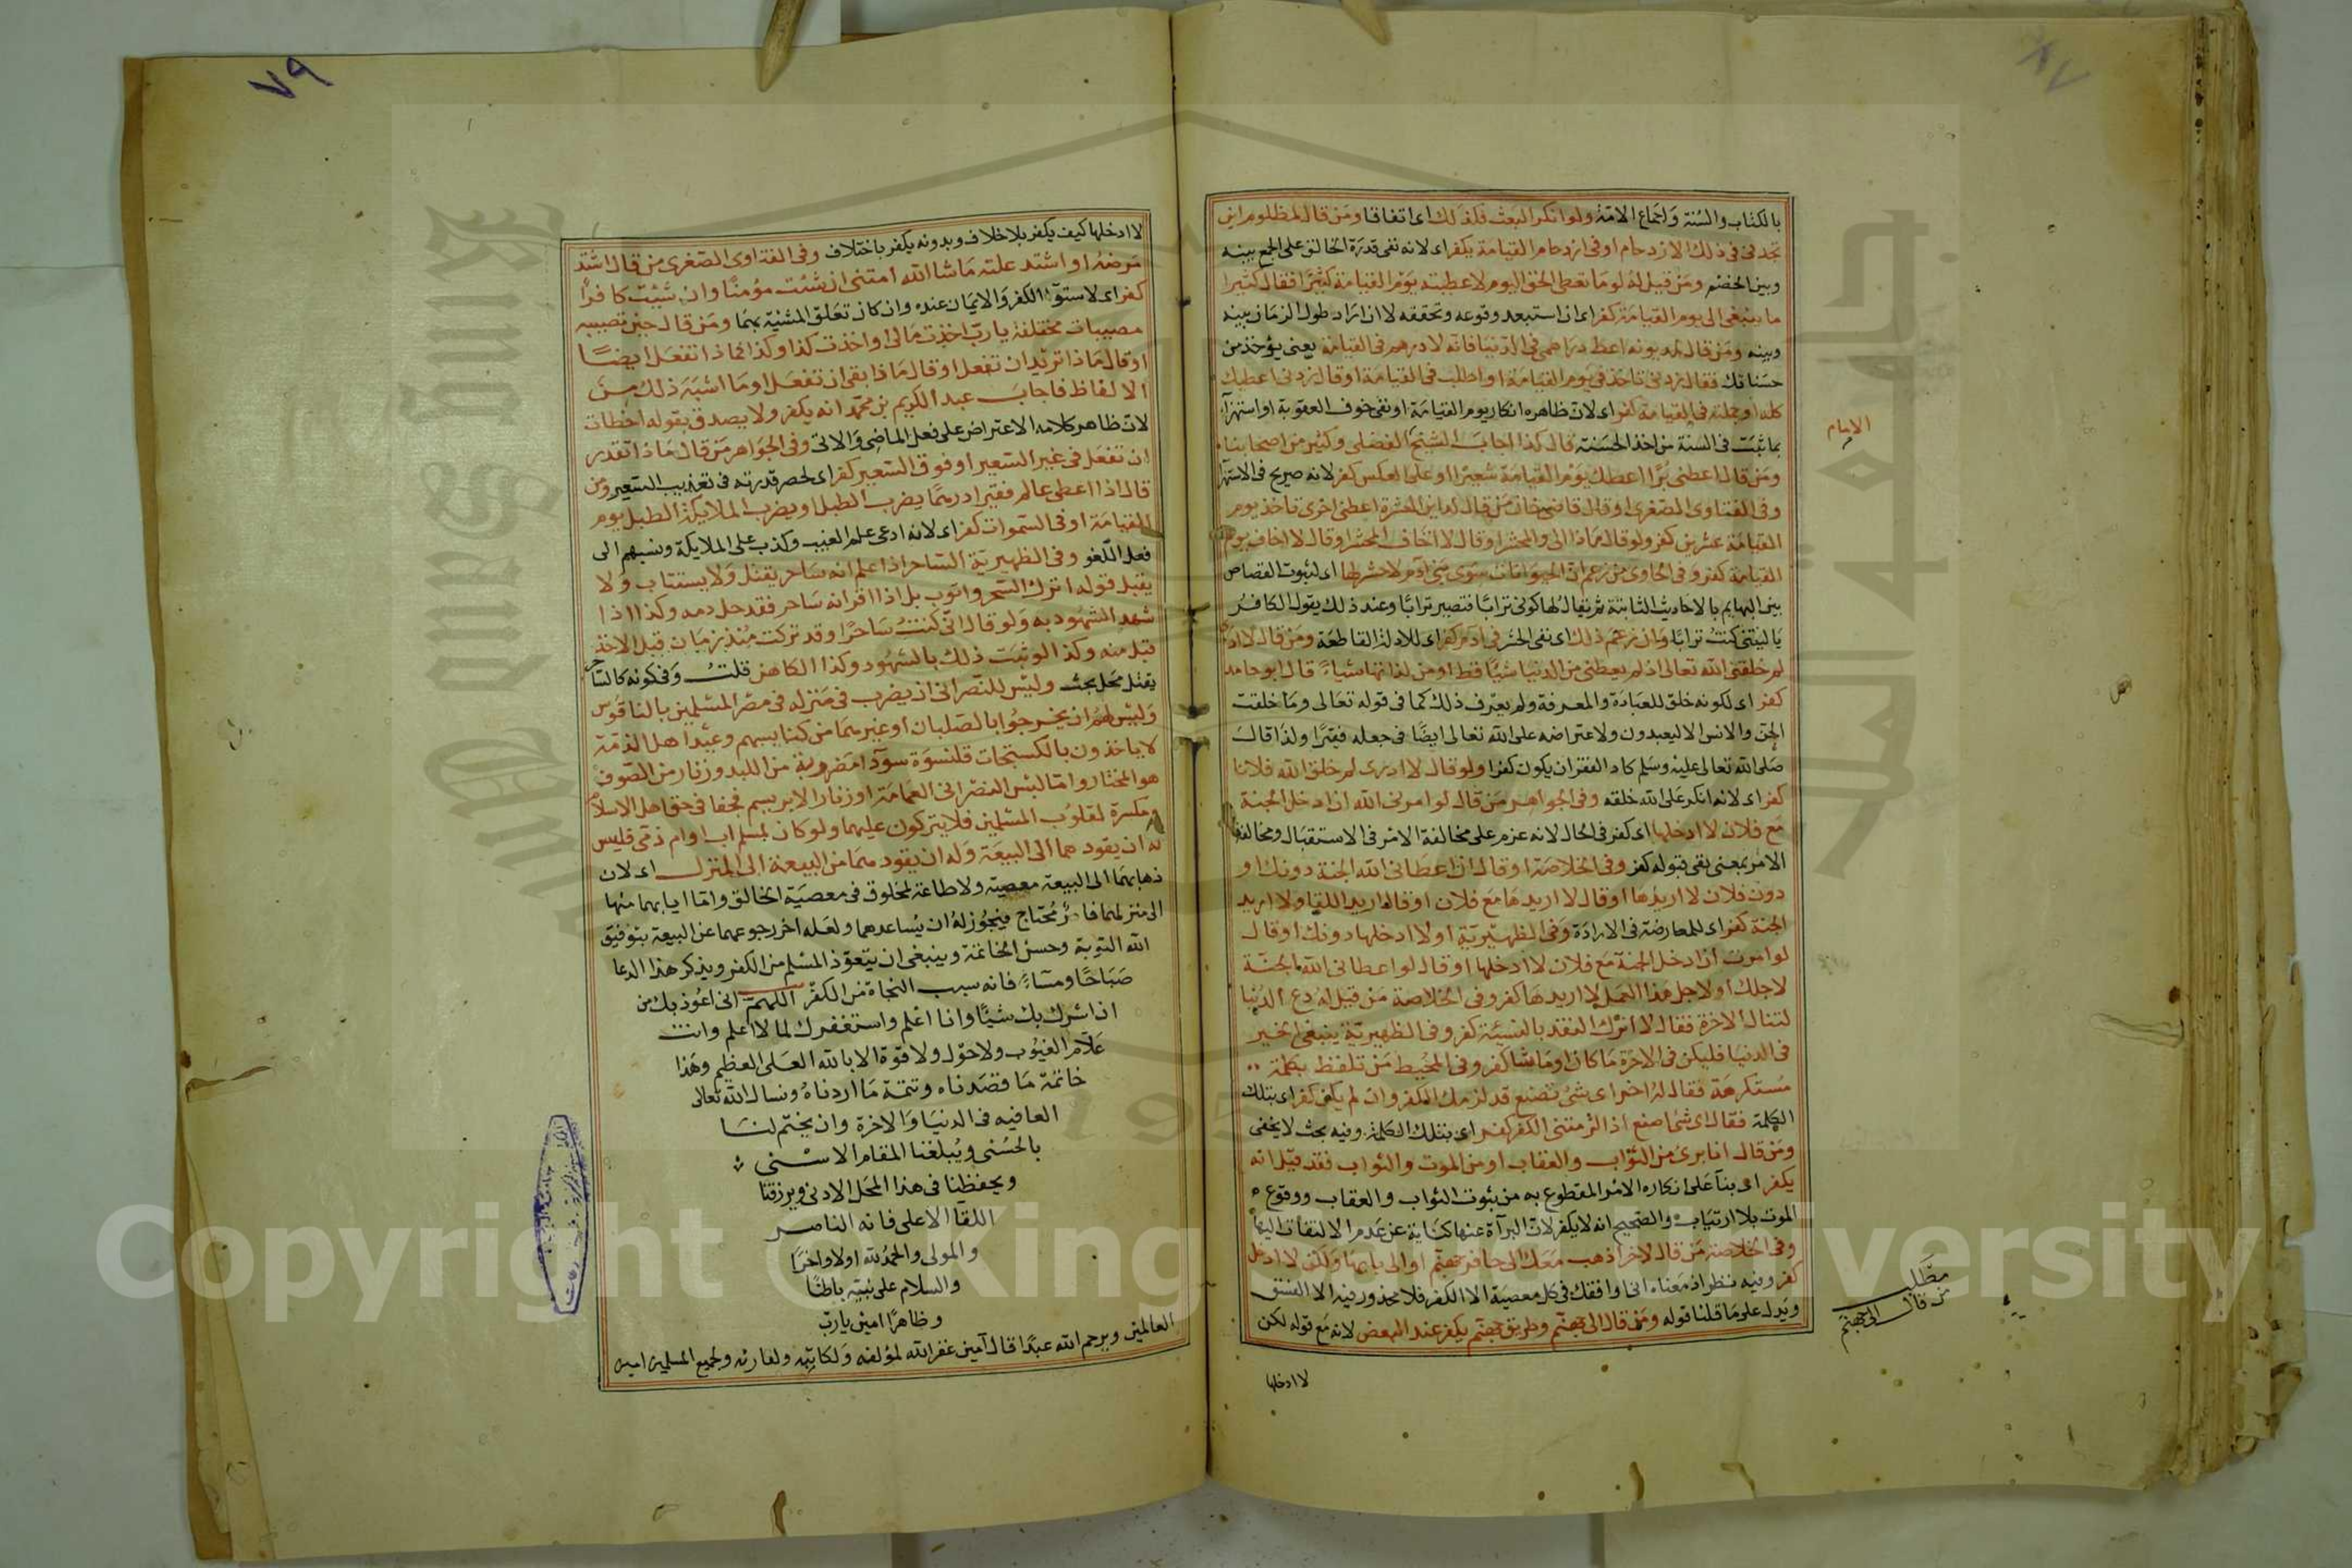 بالكتاب والسنة واجماع الامة ولو انكر البعث فلذلك اى اتفاقا ومن قال لمظلوم اين
تجدنى فى ذلك الازدحام او فى ازدحام القيامة يكفر اى لانه نفى قدرة الخالق على الجمع بينه
وبين الخصم ومن قيل له لو ما تعطى الحق اليوم لاعطيته يوم القيامة كثيرا فقال كثيرا
ما ينبغى الى يوم القيامة كفر اى ان استبعد وقوعه وتحققه لا ان اراد طول الزمان بينه
وبينه ومن قال لمديونه اعط دراهمى فى الدنيا فانه لا درهم فى القيامة يعنى يؤخذ من
حسناتك فقال زدنى تاخذ فى يوم القيامة او اطلب فى القيامة او قال زدنى اعطيك
كله او جملته فى القيامة كفر اى لان ظاهره انكار يوم القيامة او نفى خوف العقوبة او استهزآء
بما ثبت فى السنة من اخذ الحسنة قال كذا اجاب الشيخ الفضلى وكثير من اصحابنا
الامام
ومن قال اعطنى برا اعطك يوم القيامة شعيرا او على العكس كفر لانه صريح فى الاستهزا
وفى الفتاوى الصغرى او قال قاضى خان من قال لداين العشرة اعطنى اخرى تاخذ يوم
القيامة عشرين كفر ولو قال ماذا الى والمحشر او قال لا اخاف المحشر او قال لا اخاف يوم
القيامة كفر وفى الحاوى من زعم ان الحيوانات سوى بنى آدم لا حشر لها اى لثبوت القصاص
بين البهايم بالاحاديث الثابتة ثم يقال لها كونى ترابا فتصير ترابا وعند ذلك يقول الكافر
يا ليتنى كنت ترابا وان زعم ذلك اى نفى الحشر فى آدم كفر اى للادلة القاطعة ومن قال لا ادرى
لم خلقنى الله تعالى اذ لم يعطنى من الدنيا شيا قط او من لذاتها شياء قال ابو حامد
كفر اى لكونه خلق للعبادة والمعرفة ولم يعرف ذلك كما فى قوله تعالى وما خلقت
الجن والانس الا ليعبدون ولاعتراضه على الله تعالى ايضا فى جعله فقيرا ولذا قال
صلى الله تعالى عليه وسلم كاد الفقر ان يكون كفرا ولو قال لا ادرى لم خلق الله فلانا
كفر اى لانه انكر على الله خلقه وفى الجواهر من قال لو امرنى الله ان ادخل الجنة
مع فلان لا ادخلها اى كفر فى الحال لانه عزم على مخالفة الامر فى الاستقبال ومخالفة
الامر بمعنى نفى قبوله كفر وفى الخلاصة او قال ان اعطانى الله الجنة دونك او
دون فلان لا اريدها او قال لا اريدها مع فلان او قال اريد اللقا ولا اريد
الجنة كفر اى للمعارضة فى الارادة وفى الظهيرية او لا ادخلها دونك او قال
لو امرت ان ادخل الجنة مع فلان لا ادخلها او قال لو اعطانى الله الجنة
لاجلك او لاجل هذا العمل لا اريدها كفر وفى الخلاصة من قيل له دع الدنيا
لتنال الاخرة فقال لا اترك النقد بالنسيئة كفر وفى الظهيرية ينبغى الخير
فى الدنيا فليكن فى الاخرة ما كان او ما شا كفر وفى المحيط من تلفظ بكلمة
مستكرهة فقال له اخر اى شئ تصنع قد لزمك الكفر وان لم يكن كفر اى بتلك
الكلمة فقال اى شئ اصنع اذا لزمتنى الكفر كفر اى بتلك الكلمة وفيه بحث لا يخفى
ومن قال انا برئ من الثواب والعقاب او من الموت والثواب فقد قيل انه
يكفر اى بنآ على انكاره الامر المقطوع به من ثبوت الثواب والعقاب ووقوع
الموت بلا ارتياب والصحيح انه لا يكفر لان البرآة عنها كناية عن عدم الالتفات اليها
وفى الخلاصة من قال لاخر اذهب معك الى حافر جهنم او الى بابها ولكن لا ادخل
كفر وفيه نظر اذ معناه انى اوافقك فى كل معصية الا الكفر فلا محذور فيه الا الفسق
مطلب
من قال الى جهنم
ويدل على ما قلنا قوله ومن قال الى جهنم وطريق جهنم يكفر عند البعض لانه مع قوله لكن
لا ادخلها
٧٩
لا ادخلها كيف يكفر بلا خلاف وبدونه يكفر باختلاف وفى الفتاوى الصغرى من قال اشتد
مرضه او اشتد علته ما شا الله امتنى ان شئت مؤمنا وان شئت كافرا
كفر اى لاستوآ الكفر والايمان عنده وان كان تعلق المشية بهما ومن قال حين تصيبه
مصيبات مختلفة يا رب اخذت مالى او اخذت كذا وكذا فماذا تفعل ايضا
او قال ماذا تريد ان تفعل او قال ماذا بقى ان تفعل او ما اشبه ذلك من
الالفاظ فاجاب عبد الكريم بن محمد انه يكفر ولا يصدق بقوله اخطات
لان ظاهر كلامه الاعتراض على فعل الماضى والاتى وفى الجواهر من قال ماذا تقدر
ان تفعل فى غير السعير او فوق السعير كفر اى لحصر قدرته فى تعذيب السعير ومن
قال اذا اعطى عالم فقيرا درهما يضرب الطبل او يضرب الملايكة الطبل يوم
القيامة او فى السموات كفر اى لانه ادعى علم الغيب وكذب على الملايكة ونسبهم الى
فعل اللغو وفى الظهيرية الساحر اذا علم انه ساحر يقتل ولا يستتاب ولا
يقبل قوله اترك السحر واتوب بل اذا اقر انه ساحر فقد حل دمه وكذا اذا
شهد الشهود به ولو قال انى كنت ساحرا وقد تركت منذ زمان قبل الاخذ
قبل منه وكذا لو ثبت ذلك بالشهود وكذا الكاهن قلت وفى كونه كالساحر
يقتل محل بحث وليس للنصرانى ان يضرب فى منزله فى مصر المسلمين بالناقوس
وليس لهم ان يخرجوا بالصلبان او غيرهما من كنايسهم وعبيد اهل الذمة
لا ياخذون بالكستجات قلنسوة سودآ مضربة من اللبد وزنار من الصوف
هو المختار واما لبس النصرانى العمامة او زنار الابريسم فجفا فى حق اهل الاسلام
ومكسرة لقلوب المسلمين فلا يتركون عليهما ولو كان لمسلم اب او ام ذمى فليس
له ان يقودهما الى البيعة وله ان يقودهما من البيعة الى المنزل اى لان
ذهابهما الى البيعة معصية ولا طاعة لمخلوق فى معصية الخالق واما ايابهما منها
الى منزلهما فامر محتاج فيجوز له ان يساعدهما ولعله اخر رجوعهما عن البيعة بتوفيق
الله التوبة وحسن الخاتمة وينبغى ان يتعوذ المسلم من الكفر ويذكر هذا الدعا
صباحا ومسآء فانه سبب النجاة من الكفر اللهم انى اعوذ بك من
ان اشرك بك شيئا وانا اعلم واستغفرك لما لا اعلم وانت
علام الغيوب ولا حول ولا قوة الا بالله العلى العظيم وهذا
خاتمة ما قصدناه وتتمة ما اردناه ونسال الله تعالى
العافيه فى الدنيا والاخرة وان يختم لنا
بالحسنى ويبلغنا المقام الاسنى
ويحفظنا فى هذا المحل الادنى ويرزقنا
اللقا الاعلى فانه الناصر
والمولى والحمد لله اولا واخرا
والسلام على نبيه باطنا
وظاهرا امين يا رب
العالمين ويرحم الله عبدا قال آمين غفر الله لمؤلفه ولكاتبه ولقارئه ولجميع المسلمين امين
Copyright © King Saud University
King Saud University
1957
جامعة الملك سعود